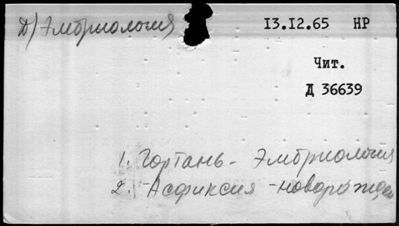 Д) Эмбриология
13.12.65 НР
Чит.
Д 36639
1. Гортань - Эмбриология
2. Асфиксия - новорожден